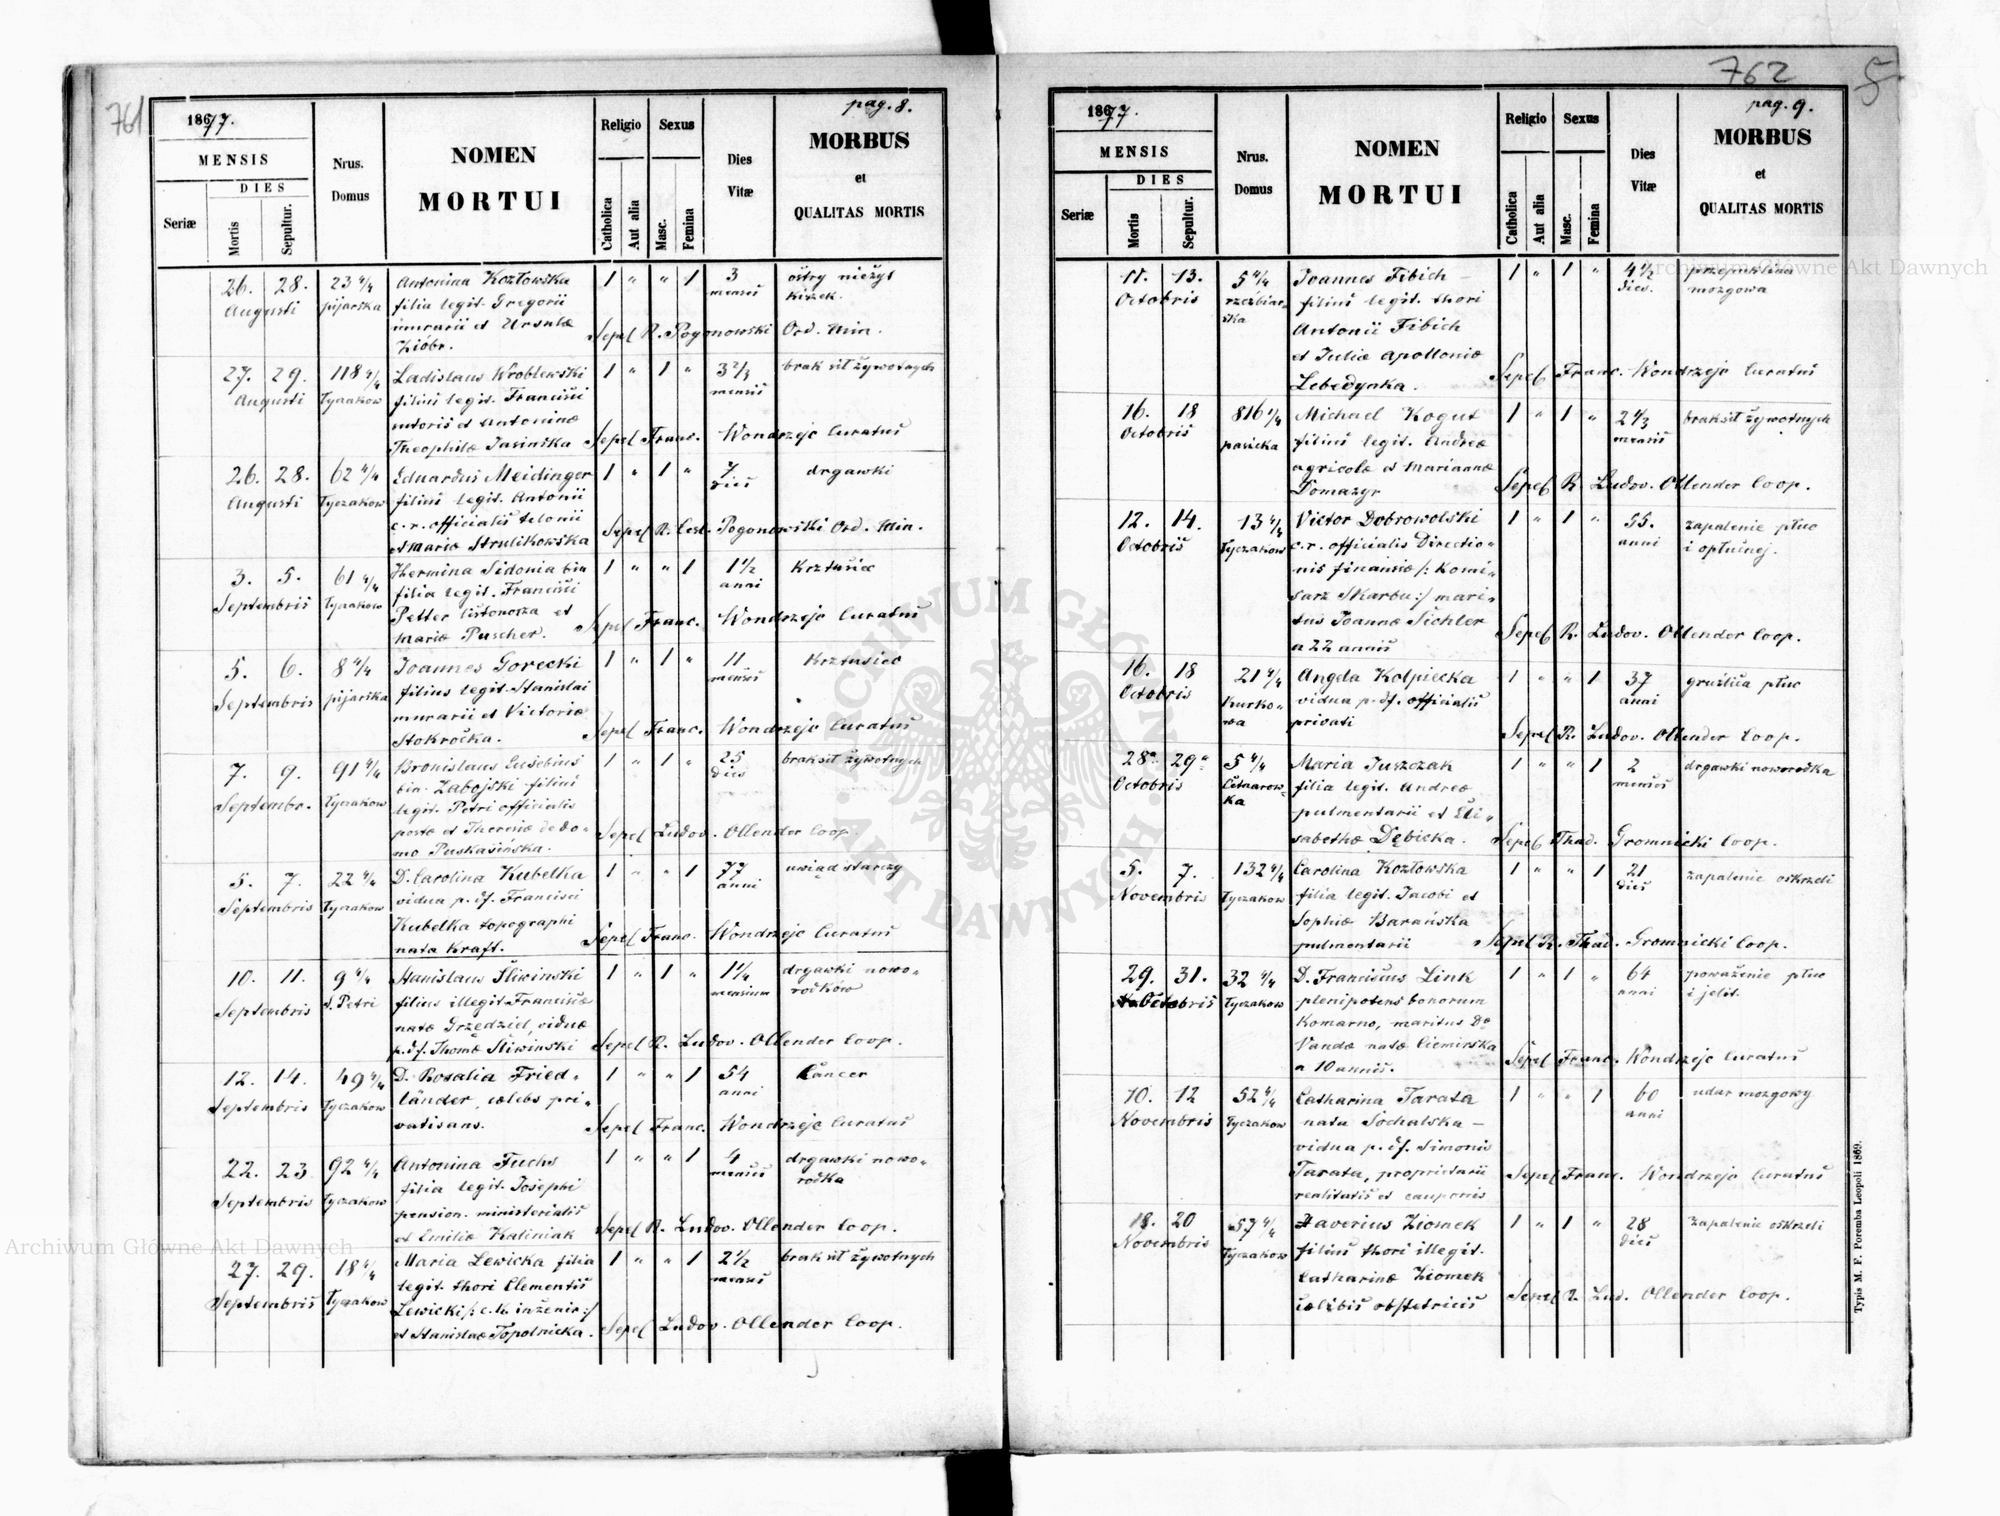 761
1877.
pag. 8.
MENSIS
Seriæ
DIES
Mortis
Sepultur.
Nrus.
Domus
NOMEN
MORTUI
Religio
Catholica
Aut alia
Sexus
Masc.
Femina
Dies
Vitæ
MORBUS
et
QUALITAS MORTIS
26. 28. 23 4/4 Antonina Kozłowska 1 " " 1 3 ostry nieżyt
Augusti pijarska filia legit. Gregorii mensis kiszek.
murarii et Ursulæ Sepel R. Pogonowski Ord. Min.
Ziobr.
27. 29. 118 4/4 Ladislaus Wroblewski 1 " 1 " 3 2/3 brak sił żywotnych
Augusti Łyczakow filius legit. Francisci mensis
sutoris et Antoninæ
Theophilæ Jasińska Sepel Franc. Wondrzejc Curatus
26. 28. 62 4/4 Eduardus Meidinger 1 " 1 " 7 drgawki
Augusti Łyczakow filius legit. Antonii dies
c. r. officialis telonii
et Mariæ Strulikowska Sepel R. Cesl. Pogonowski Ord. Min.
3. 5. 61 4/4 Hermina Sidonia bin 1 " " 1 1 1/2 Krztusiec
Septembris Łyczakow filia legit. Francisci anni
Petter listonosza et Sepel Franc. Wondrzejc Curatus
Mariæ Puscher.
5. 6. 8 4/4 Joannes Gorecki 1 " 1 " 11 Krztusiec
Septembris pijarska filius legit. Stanislai mensis
murarii et Victoriæ Sepel Franc. Wondrzejc Curatus
Stokročka.
7. 9. 91 4/4 Bronislaus Eusebius 1 " 1 " 25 brak sił żywotnych
Septembr. Łyczakow bin. Zabojski filius dies
legit. Petri officialis
postæ et Theresiæ de do- Sepel Ludov. Ollender Coop.
mo Puskasińska.
5. 7. 22 4/4 D. Carolina Kubelka 1 " " 1 77 uwiąd starczy
Septembris Łyczakow vidua p. df. Francisci anni
Kubelka topographi Sepel Franc. Wondrzejc Curatus
nata Kraft.
10. 11. 9 4/4 Stanislaus Śliwinski 1 " 1 " 1 1/4 drgawki nowo-
Septembris S. Petri filius illegit. Franciscæ mensium rodków
natæ Grzędziel, viduæ
p. df. Thomæ Śliwinski Sepel R. Ludov. Ollender Coop.
12. 14. 49 4/4 D. Rosalia Fried- 1 " " 1 54 Cancer
Septembris Łyczakow länder, cœlebs pri- anni
vatisans. Sepel Franc. Wondrzejc Curatus
22. 23 92 4/4 Antonina Fuchs 1 " " 1 4 drgawki nowo-
Septembris Łyczakow filia legit. Josephi mensis rodka
pension. ministerialis
et Emiliæ Kaliniak Sepel R. Ludov. Ollender Coop.
27. 29. 18 4/4 Maria Lewicka filia 1 " " 1 2 1/2 brak sił żywotnych
Septembris Łyczakow legit. thori Clementis mensis
Lewicki /: c. k. inżenir :/
et Stanislaæ Topolnicka. Sepel Ludov. Ollender Coop.
762
1877.
pag. 9.
MENSIS
Seriæ
DIES
Mortis
Sepultur.
Nrus.
Domus
NOMEN
MORTUI
Religio
Catholica
Aut alia
Sexus
Masc.
Femina
Dies
Vitæ
MORBUS
et
QUALITAS MORTIS
11. 13. 5 4/4 Joannes Fibich 1 " 1 " 4 1/2 przepuklina
Octobris rzeźbiar- filius legit. thori dies. mozgowa
ska Antonii Fibich
et Juliæ Apolloniæ
Lebedynka. Sepel Franc. Wondrzejc Curatus
16. 18 816 1/4 Michael Kogut 1 " 1 " brak sił żywotnych
Octobris pasieka filius legit. Andreæ mensis
agricolæ et Mariannæ
Domazyr Sepel R. Ludov. Ollender Coop.
12. 14. 13 4/4 Victor Dobrowolski 1 " 1 " 55. zapalenie płuc
Octobris Łyczakow c. r. officialis Directio- anni i opłucnej.
nis finansiæ /: Komi-
sarz Skarbu :/ mari-
tus Joannæ Tichler Sepel R. Ludov. Ollender Coop.
a 22 annis
16. 18 21 4/4 Angela Kolpiecka 1 " " 1 37 gruźlica płuc
Octobris Kurko- vidua p. df. officialis anni
wa privati Sepel R. Ludov. Ollender Coop.
28a 29a 5 4/4 Maria Juszczak 1 " " 1 2 drgawki noworodka
Octobris Cetnarow- filia legit. Andreæ mensis
ka pulmentarii et Eli-
sabethæ Dębicka. Sepel Thad. Gromnicki Coop.
5. 7. 132 4/4 Carolina Kozłowska 1 " " 1 21 zapalenie oskrzeli
Novembris Łyczakow filia legit. Jacobi et dies
Sophiæ Barańska
pulmentarii Sepel R. Thad. Gromnicki Coop.
29. 31. 32 4/4 D. Franciscus Link 1 " 1 " 64 porażenie płuc
Octobris Łyczakow plenipotens bonorum anni i jelit.
Komarno, maritus Dæ
Vandæ natæ Ciemirska Sepel Franc. Wondrzejc Curatus
a 10 annis.
10. 12 52 4/4 Catharina Tarata 1 " " 1 60 udar mozgowy
Novembris Łyczakow nata Sochalska – anni
vidua p. df. Simonis
Tarata, proprietarii Sepel Franc. Wondrzejc Curatus
realitatis et cauponis
18. 20 57 4/4 Xaverius Ziomek 1 " 1 " 28 zapalenie oskrzeli
Novembris Łyczakow filius thori illegit. dies
Catharinæ Ziomek
cœlibis obstetricis Sepel R. Lud. Ollender Coop.
Typis M. F. Poremba Leopoli 1869.
Archiwum Główne Akt Dawnych
Archiwum Główne Akt Dawnych
ARCHIWUM GŁÓWNE
AKT DAWNYCH